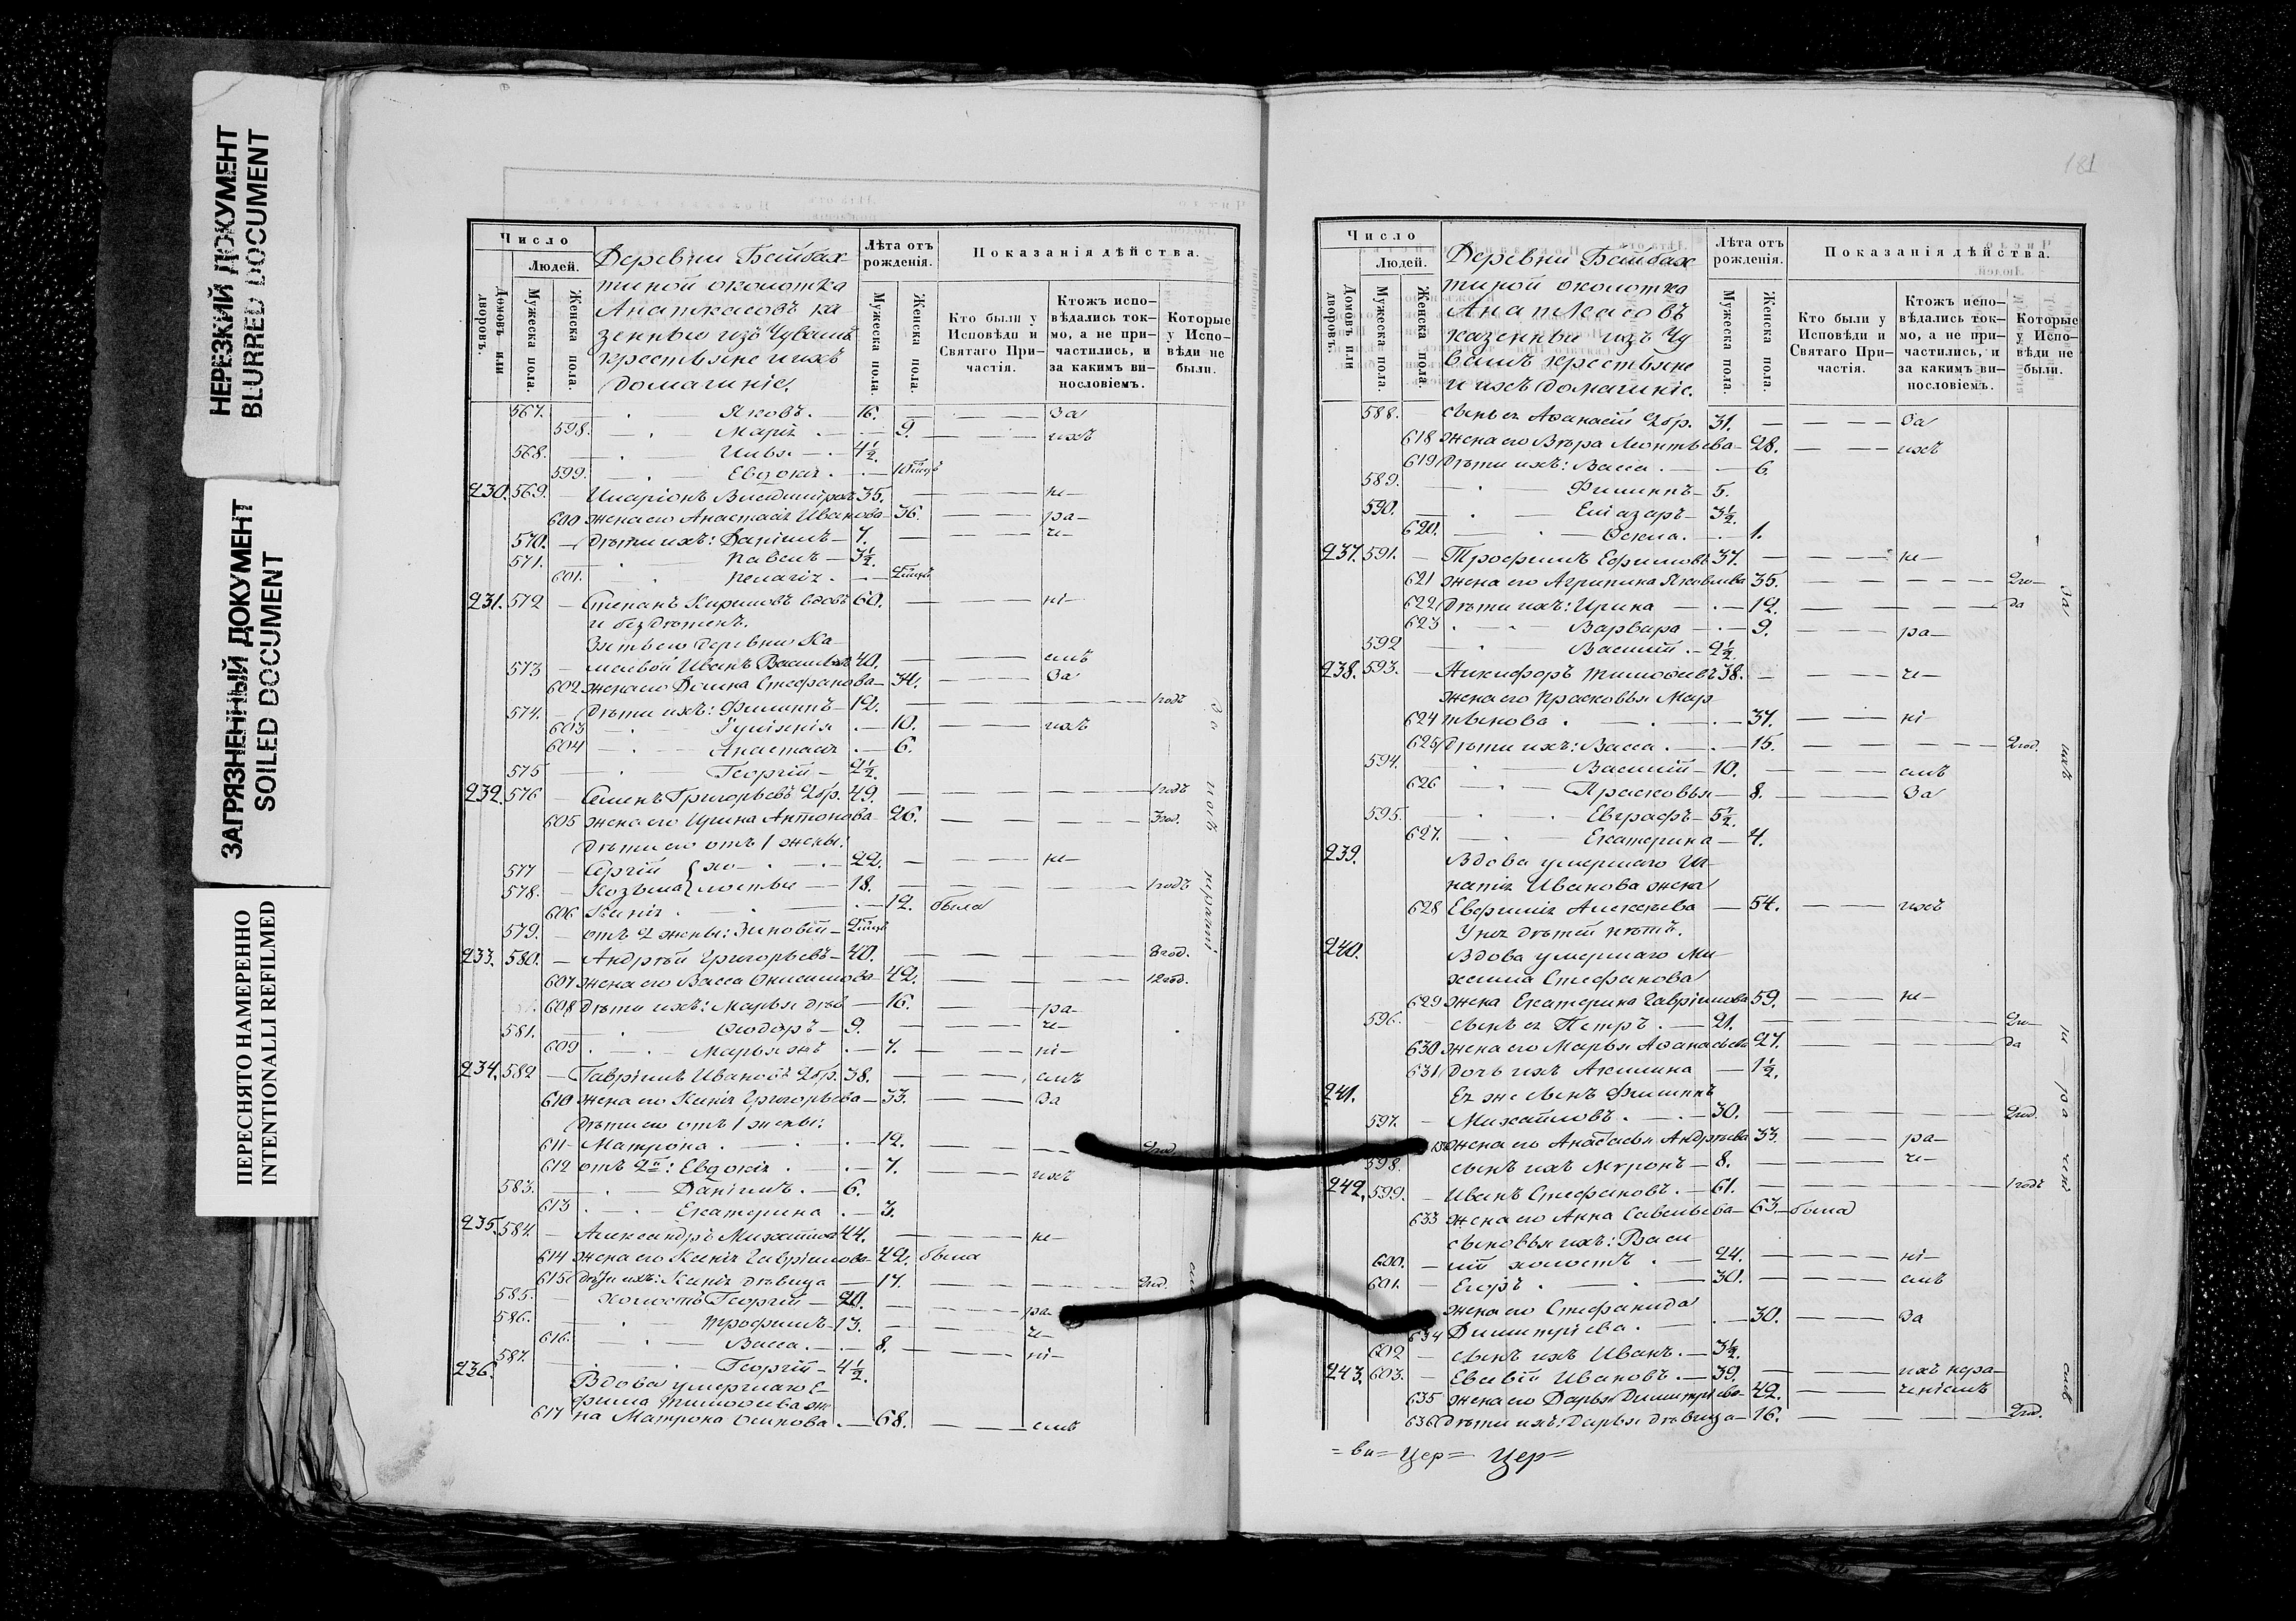 НЕРЕЗКИЙ ДОКУМЕНТ
BLURRED DOCUMENT
ЗАГРЯЗНЕННЫЙ ДОКУМЕНТ
SOILED DOCUMENT
ПЕРЕСНЯТО НАМЕРЕННО
INTENTIONALI REFILMED
Число
Людей.
Домовъ или дворовъ.
Мужеска пола.
Женска пола.
Деревни Байбах-
тиной околотка
Анаткасовъ ка
зенные изъ Чувашъ
крестьяне и ихъ
домашніе.
Лѣта отъ рожденія.
Мужеска пола.
Женска пола.
Показанія дѣйства.
Кто были у Исповѣди и Святаго При-частія.
Ктожъ испо-вѣдались ток-мо, а не при-частились, и за какимъ ви-нословіемъ.
Которые у Испо-вѣди не были.
567. Яковъ. 16. За
598. Марія 9. ихъ
568. Илья 4½.
599. Евдокія. 10
230. 569. Иларіонъ 35. не-
600 жена его Анастасія Иванова 36. ра-
570. дѣти ихъ: Даніилъ 7. че-
571. Павелъ 3½.
601. Пелагія.
231. 572 Степанъ Кириловъ вдовъ 60. ні-
и бездѣтенъ.
Зять его деревни Ка-
573 Иванъ 40. емъ
602 жена его Домна Стефанова 34. За
574. дѣти ихъ: Филиппъ 12. 1 годъ
603 Іуліянія 10. ихъ
604 Анастасія 6.
575 Георгій 2½.
232. 576 Семенъ Григорьевъ 2 бр. 49. 1 годъ
605 жена его Ирина Антонова 26. 3 год.
дѣти его отъ 1 жены:
577 Сергій хо- 22. не-
578. Козьма лостые 18. 1 годъ
606 Ксенія 12. была
579. отъ 2 жены: Зиновій
233. 580. Андрей Григорьевъ 40. 8 год.
607 жена его Васса 42. 12 год.
608 дѣти ихъ: Марья дѣв 16. ра-
581. Ѳеодоръ 9. че-
609 Марья 7. ні-
234. 582 Гавріилъ Ивановъ 2 бр. 38. емъ
610 жена его Ксенія Григорьева 33. За
дѣти его отъ 1 жены:
611 Матрона 12. 2 год.
612 отъ 2й: Евдокія 7. ихъ
583. Даніилъ. 6.
613 Екатерина 3.
235. 584. Александръ 44. не-
614 жена его Ксенія Гавріилова 42. была
615 дѣти ихъ: Ксенія дѣвица 17. 2 год.
585. холостъ Георгій 20. ра-
586. Трофимъ 13. че-
616. Васса. 8. ні-
587. Георгій 4½.
236. Вдова умершаго Е-
фима Тимофеева же
617 на Матрона Осипова. 68. емъ
181
Число
Людей.
Домовъ или дворовъ.
Мужеска пола.
Женска пола.
Деревни Байбах
тиной околотка
Анаткасовъ
казенные изъ Чу
вашъ крестьяне
и ихъ домашніе.
Лѣта отъ рожденія.
Мужеска пола.
Женска пола.
Показанія дѣйства.
Кто были у Исповѣди и Святаго При-частія.
Ктожъ испо-вѣдались ток-мо, а не при-частились, и за какимъ ви-нословіемъ.
Которые у Испо-вѣди не были.
588. сынъ ея Аѳанасій 2 бр. 31. За
618 жена его Вѣра Леонтьева 28. ихъ
619 дѣти ихъ: Васса. 6.
589. Филиппъ 5.
590. Еліазаръ 3½.
620. 1.
237. 591. Трофимъ Ефимовъ 37. не-
621 жена его Агрипина Яковлева 35. 2 го-
622 дѣти ихъ: Ирина 12. да
623 Варвара 9. ра-
592 Василій. 2½.
238. 593. Никифоръ Тимофеевъ 38. че-
жена его Прасковья Мар
624 тынова. 37. ні-
625 дѣти ихъ: Васса. 15. 2 год.
594. Василій 10. емъ
626 Прасковья 8. За
595. Евграфъ 5½.
627. Екатерина 4.
239. Вдова умершаго Иг
натія Иванова жена
628 Евфимія Алексеева 54. ихъ
У нея дѣтей нѣтъ.
240. Вдова умершаго Ми
хаила Стефанова
629 жена Екатерина Гавріилова 59. не-
596. сынъ ея Петръ. 21. 2 го-
630 жена его Марья Аѳанасьева 27. да
631 дочь ихъ Акилина 1½.
241. Ея же сынъ Филиппъ
597. Михайловъ. 30. 2 год.
жена его Андреева 33. ра-
598. сынъ ихъ Миронъ 8. че-
242. 599. Иванъ Стефановъ. 61. 1 годъ
633 жена его Анна Савельева 63. была
сыновья ихъ: Васи
600. лій холостъ. 24. ні-
601. Егоръ. 30. емъ
жена его Стефанида
634 Димитріева. 30. За
602 сынъ ихъ Иванъ. 3½.
243. 603. Евсевій Ивановъ. 39. ихъ нера-
635 жена его Дарья Димитріева 42. ченіемъ
636 дѣти ихъ: Дарья дѣвица 16. 2 год.
=ви= Цер= Цер=